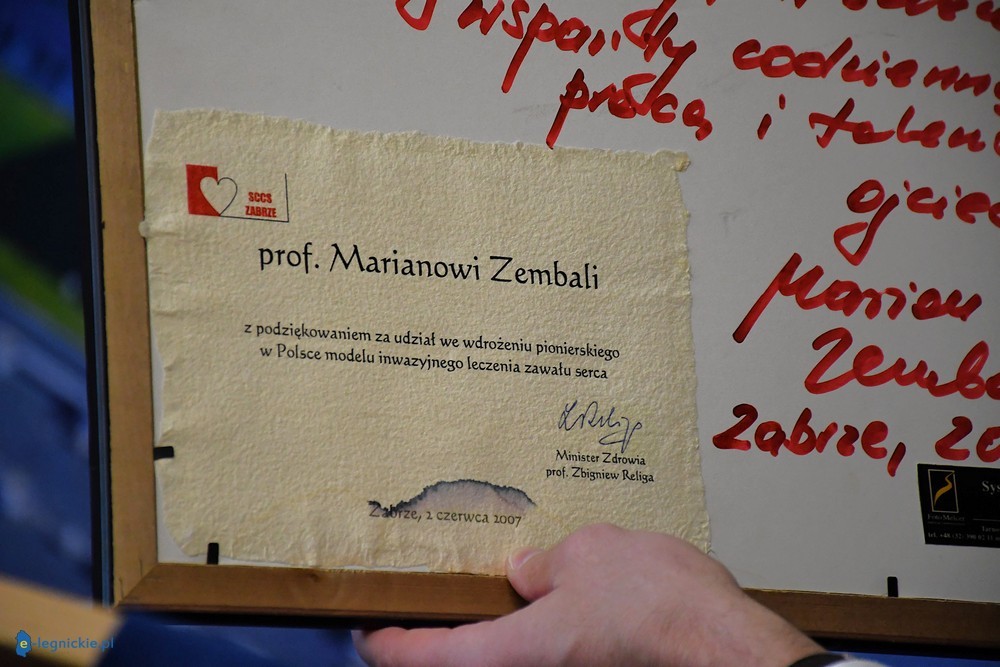 wsparty codzienną
pracą i talente
ojciec
Marian
Zemba
Zabrze, 20
SCCS
ZABRZE
prof. Marianowi Zembali
z podziękowaniem za udział we wdrożeniu pionierskiego
w Polsce modelu inwazyjnego leczenia zawału serca
Minister Zdrowia
prof. Zbigniew Religa
Zabrze, 2 czerwca 2007
Sys
e-legnickie.pl